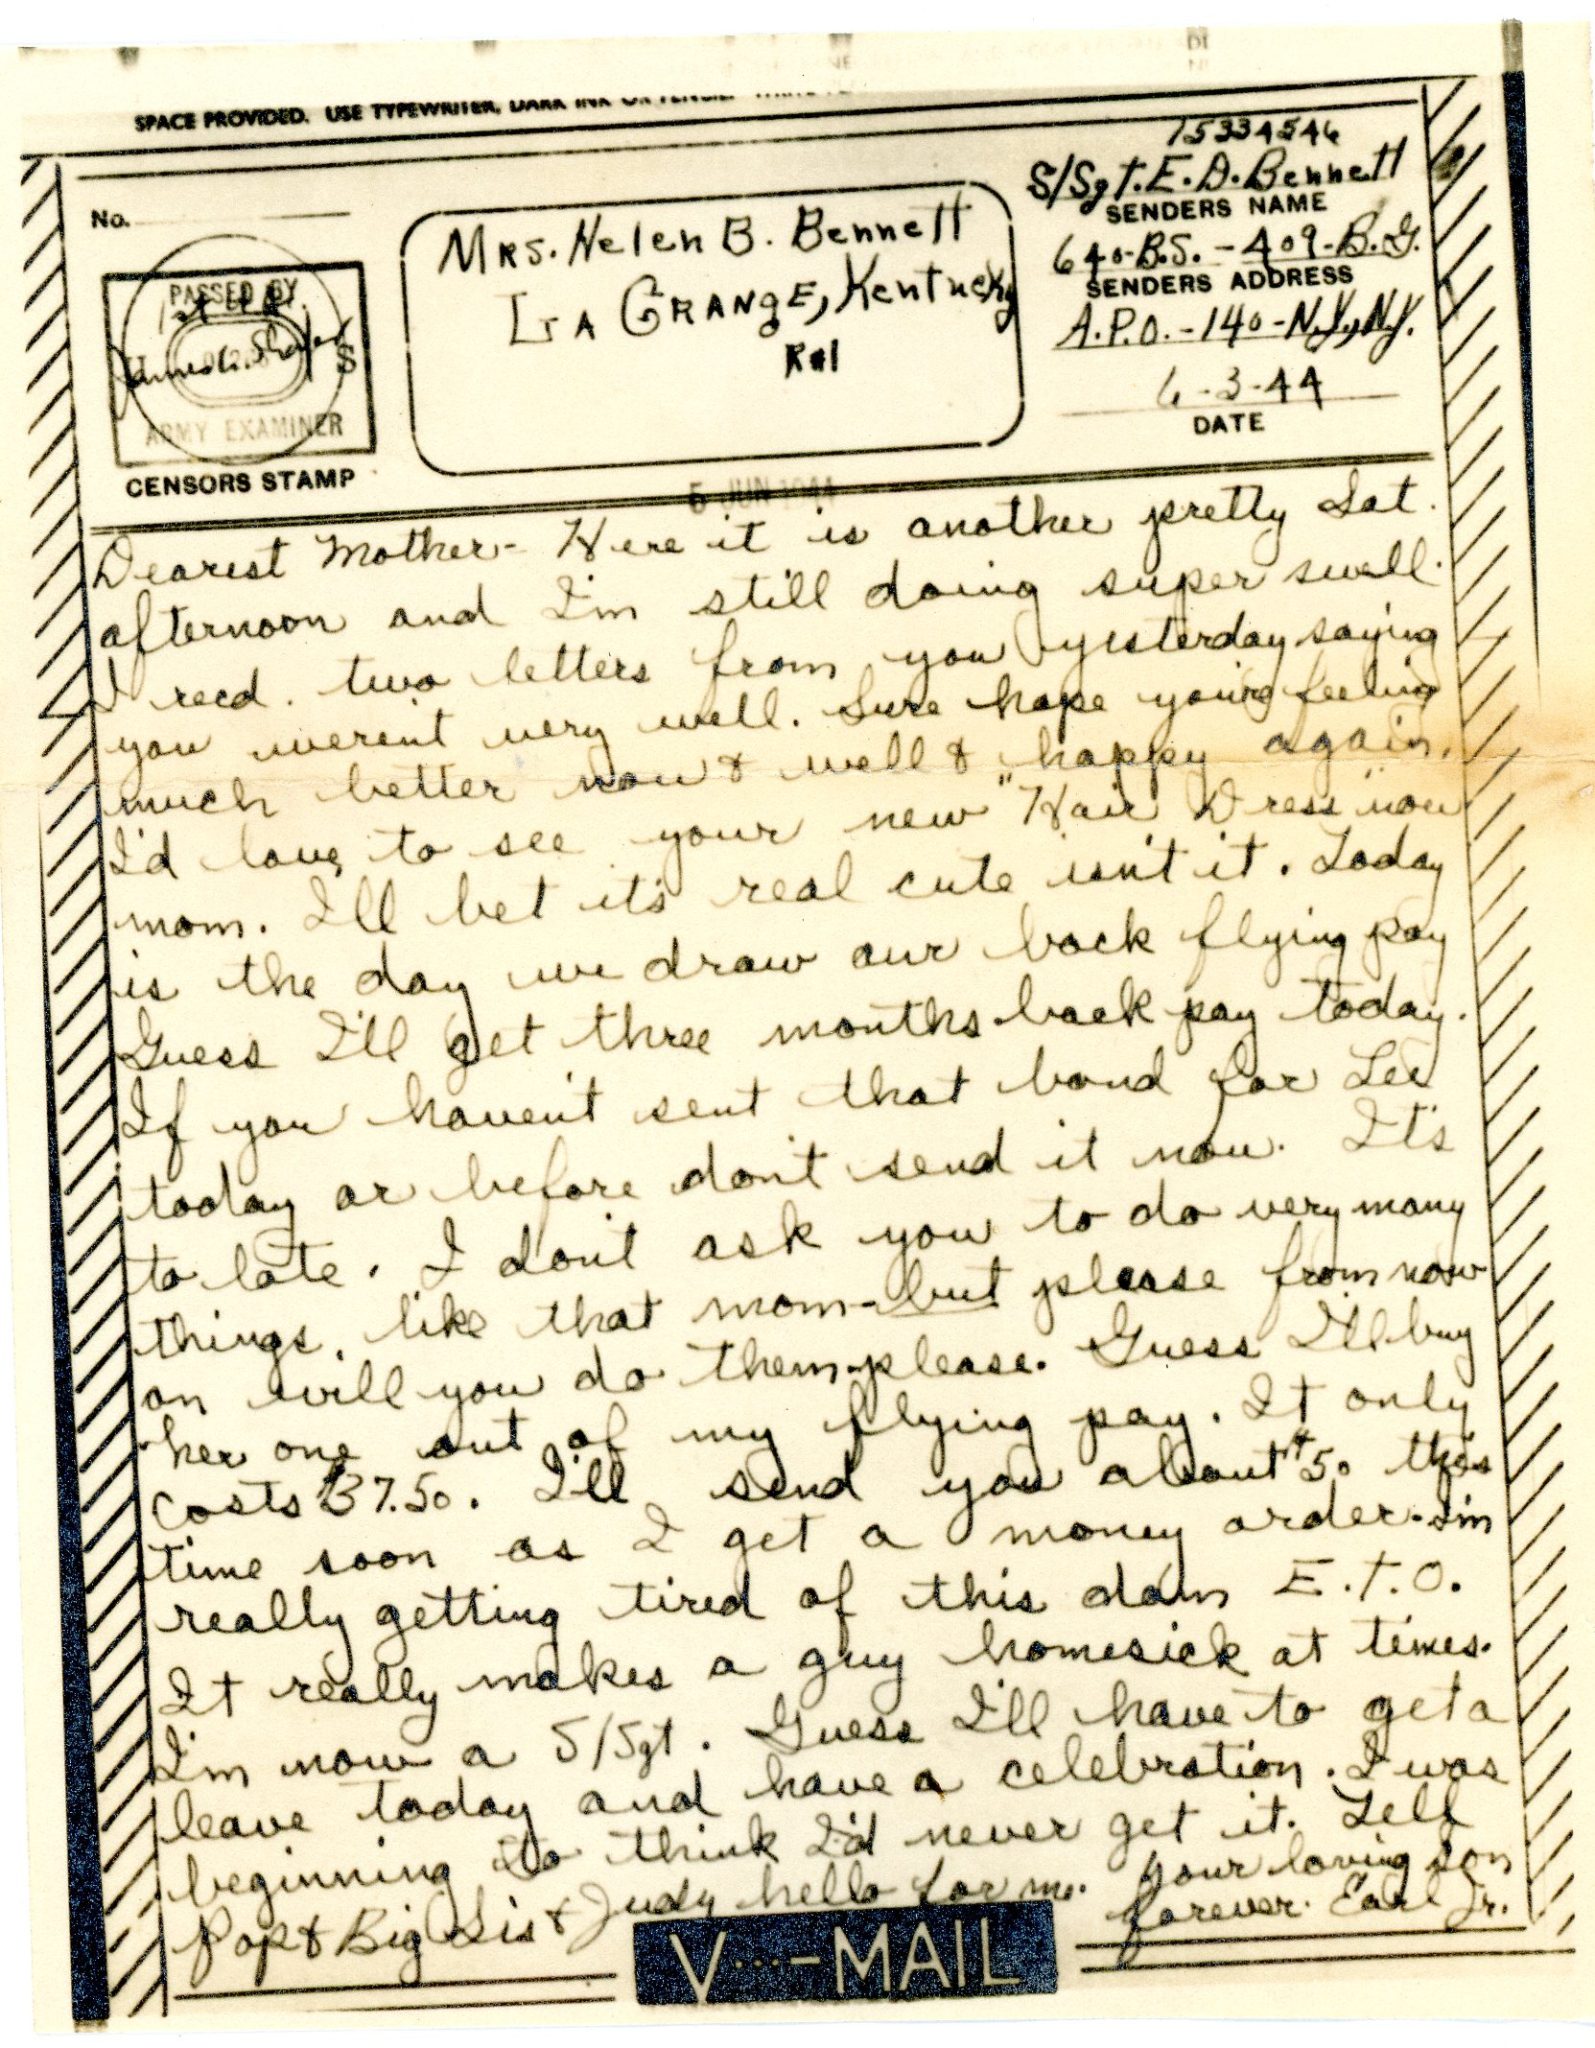 SPACE PROVIDED. USE TYPEWRITER, DARK INK OR PENCIL.
No.
PASSED BY
U S
ARMY EXAMINER
CENSORS STAMP
Mrs. Helen B. Bennett
La Grange, Kentucky
R#1
15334546
S/Sgt. E. D. Bennett
SENDERS NAME
640-B.S. - 409-B.G.
SENDERS ADDRESS
A.P.O. - 140 - N.Y., N.Y.
6-3-44
DATE
5 JUN 1944
Dearest Mother - Here it is another pretty Sat.
afternoon and I'm still doing super swell.
I recd. two letters from you yesterday saying
you weren't very well. Sure hope you're feeling
much better now & well & happy again.
I'd love to see your new "Hair Dress" now
mom. I'll bet it's real cute isn't it. Today
is the day we draw our back flying pay
Guess I'll get three months back pay today.
If you haven't sent that bond for Lee
today or before don't send it now. It's
to late. I don't ask you to do very many
things, like that mom - but please from now
on will you do them please. Guess I'll buy
her one out of my flying pay. It only
costs $37.50. I'll send you about $50 this
time soon as I get a money order. I'm
really getting tired of this dam E.T.O.
It really makes a guy homesick at times.
I'm now a S/Sgt. Guess I'll have to get a
leave today and have a celebration. I was
beginning to think I'd never get it. Tell
Pop & Big Sis & Judy hello for me. Your loving son
forever. Earl Jr.
V...-MAIL